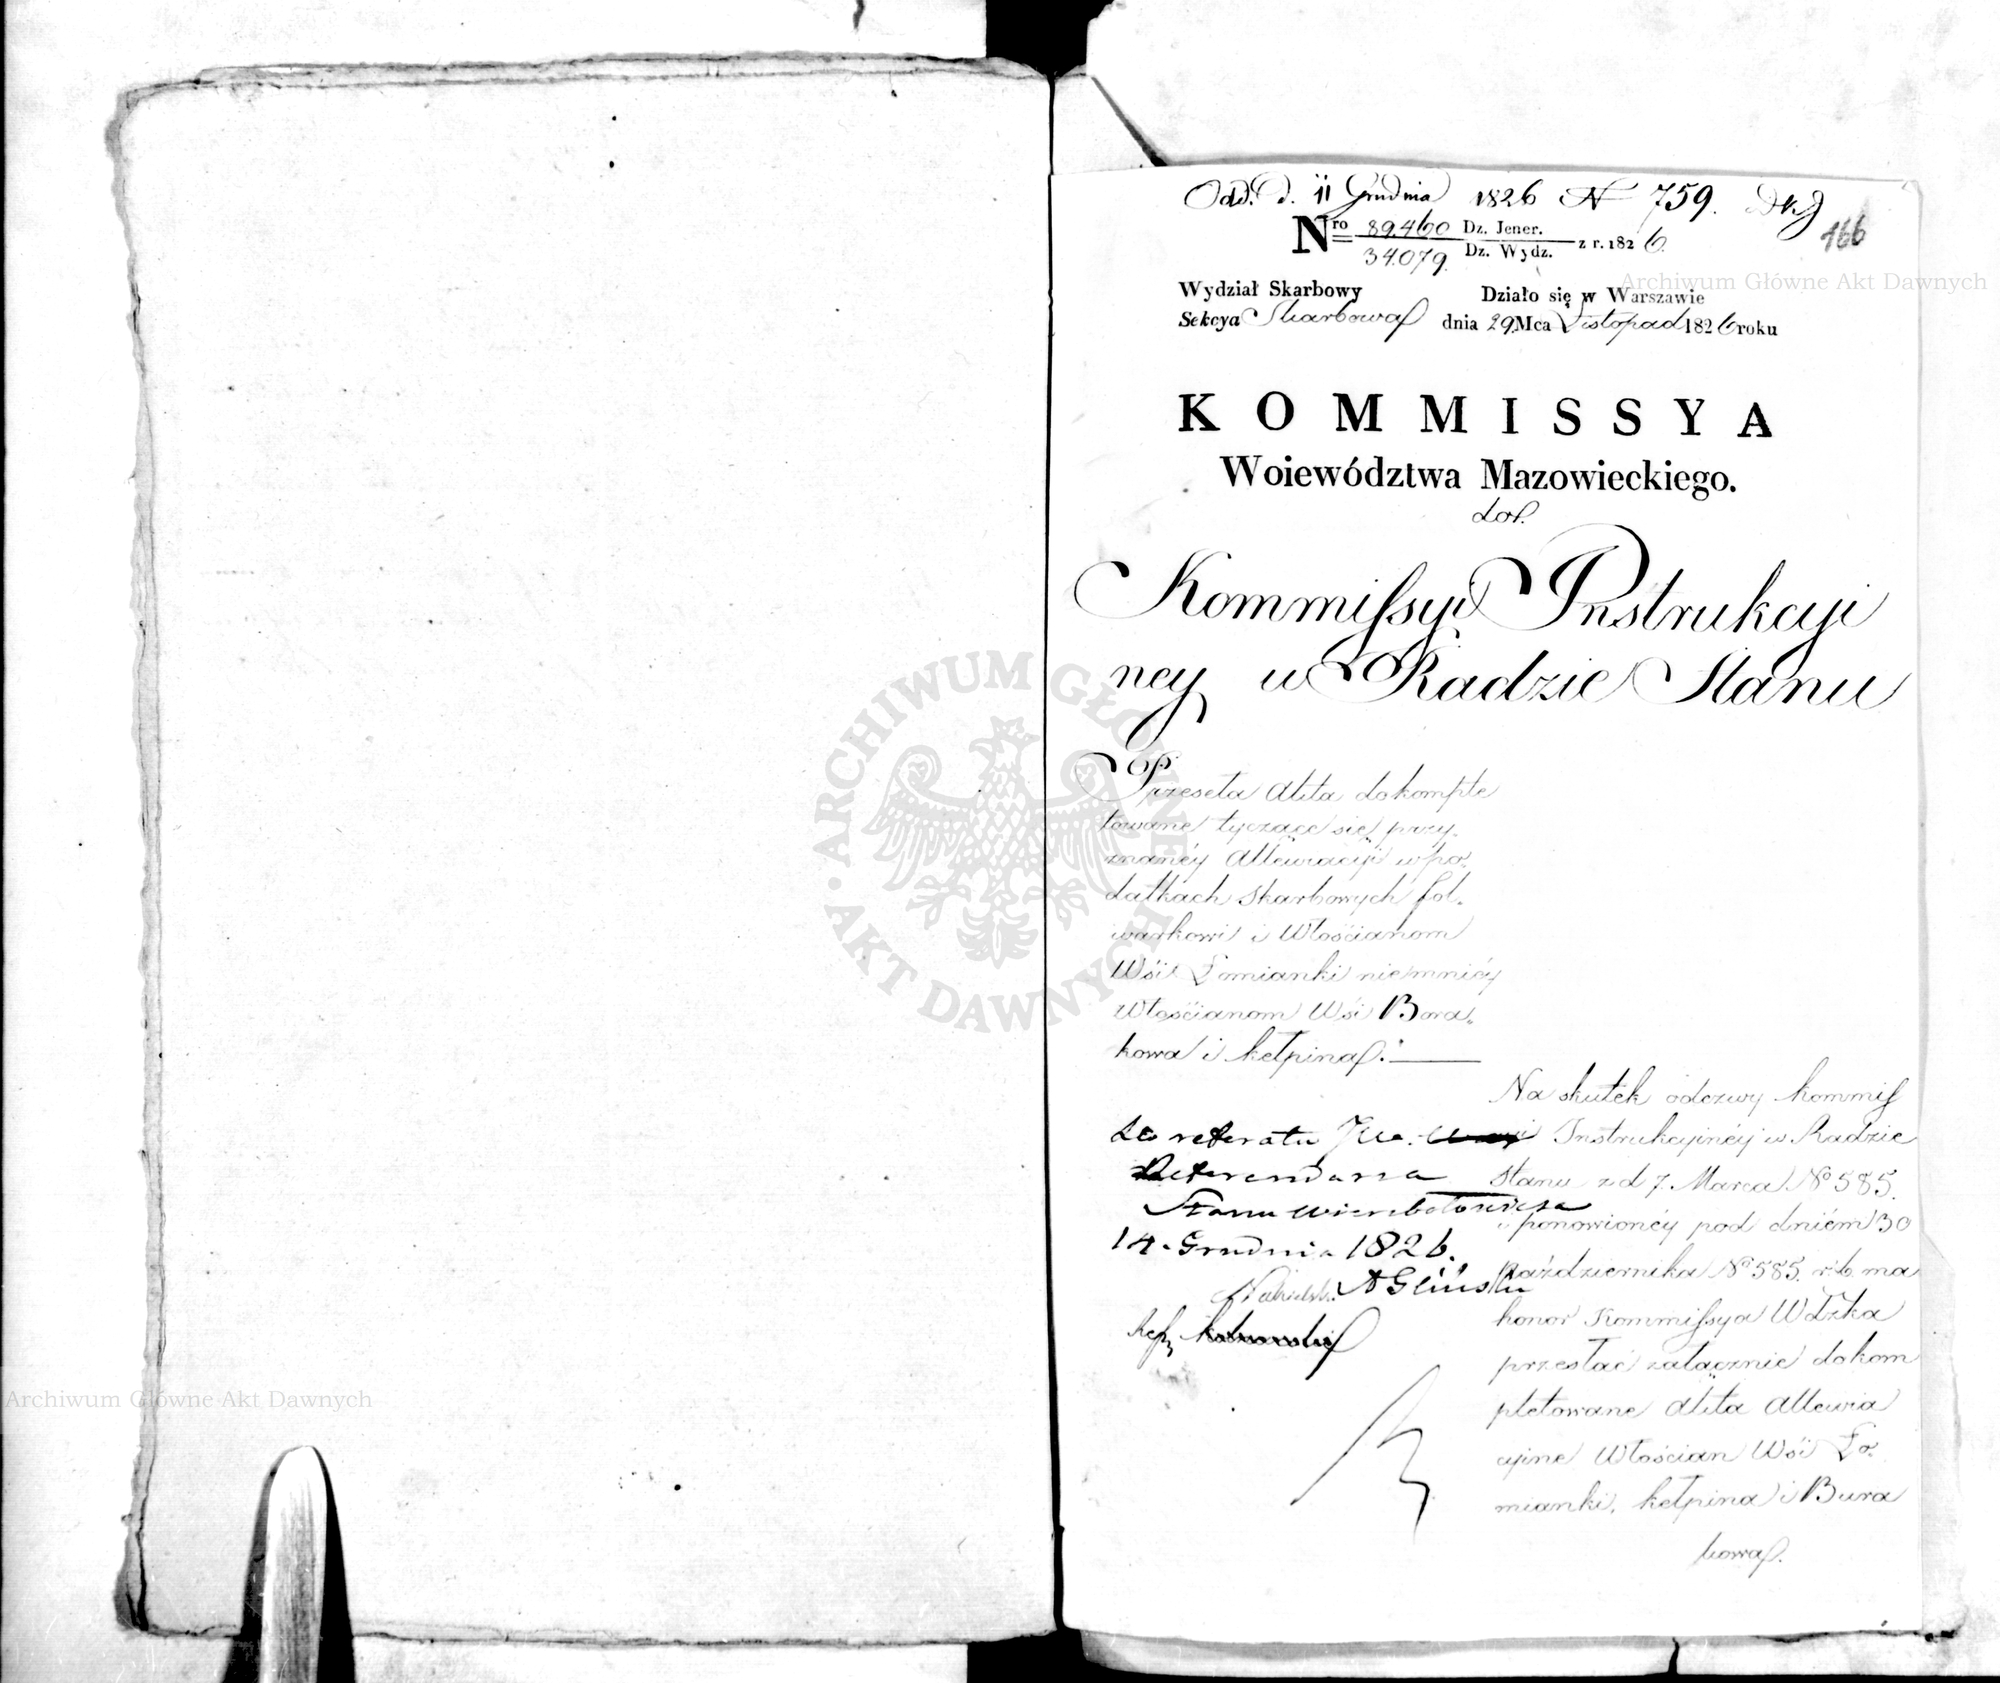 Odd. d. 11 Grudnia 1826 N 759.
166
Nro 89.460 Dz. Jener.
34.079. Dz. Wydz. z r. 1826.
Wydział Skarbowy Działo się w Warszawie
Sekcya Skarbowa dnia 29 Mca Listopad 1826 roku
KOMMISSYA
Woiewództwa Mazowieckiego.
do
Kommissyi Instrukcyi
ney w Radzie Stanu
Przeseła Akta dokomple
towane tyczące się przy-
znanéy Allewiacyi w po-
datkach skarbowych fol-
warkowi i Włościanom
Wsi Łomianki niemniéy
Włościanom Wsi Bora-
kowa i Kełpina.
Na skutek odezwy Kommis
Instrukcyinéy w Radzie
Stanu z d 7. Marca No 585.
i ponowionéy pod dniém 30
Października No 585. r. b. ma
honor Kommissya Wdzka
przesłać załącznie dokom
pletowane Akta Allewia
cyine Włościan Wsi Ło-
mianki, Kełpina i Bura
kowa.
do referatu JW.
Referendarza
Stanu Wierzbołowicza
14. Grudnia 1826.
A Gliński
Archiwum Główne Akt Dawnych
ARCHIWUM GŁÓWNE AKT DAWNYCH
Archiwum Główne Akt Dawnych